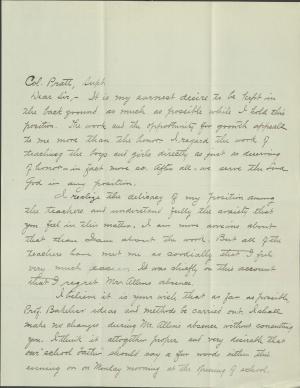 Col. Pratt, Supt.
Dear Sir,- It is my earnest desire to be kept in
the back ground as much as possible while I hold this
position. The work and the opportunity for growth appeals
to me more than the honor. I regard the work of
teaching the boys and girls directly as just as deserving
of honor - in fact more so. After all - we serve the
God in any position.
I realize the delicacy of my position among
the teachers and understand fully the anxiety that
you feel in this matter. I am more anxious about
that than I am about the work. But all of the
teachers have met me so cordially that I feel
very much easier. It was chiefly on this account
that I regret Mr. Allens absence.
I believe it is your wish that as far as possible,
Prof. ideas and methods be carried out. I shall
make no changes during Mr. Allens absence without consulting
you. I think it altogether proper and very desirable that
our school Father should say a few words either this
evening or on Monday morning at the opening of school.